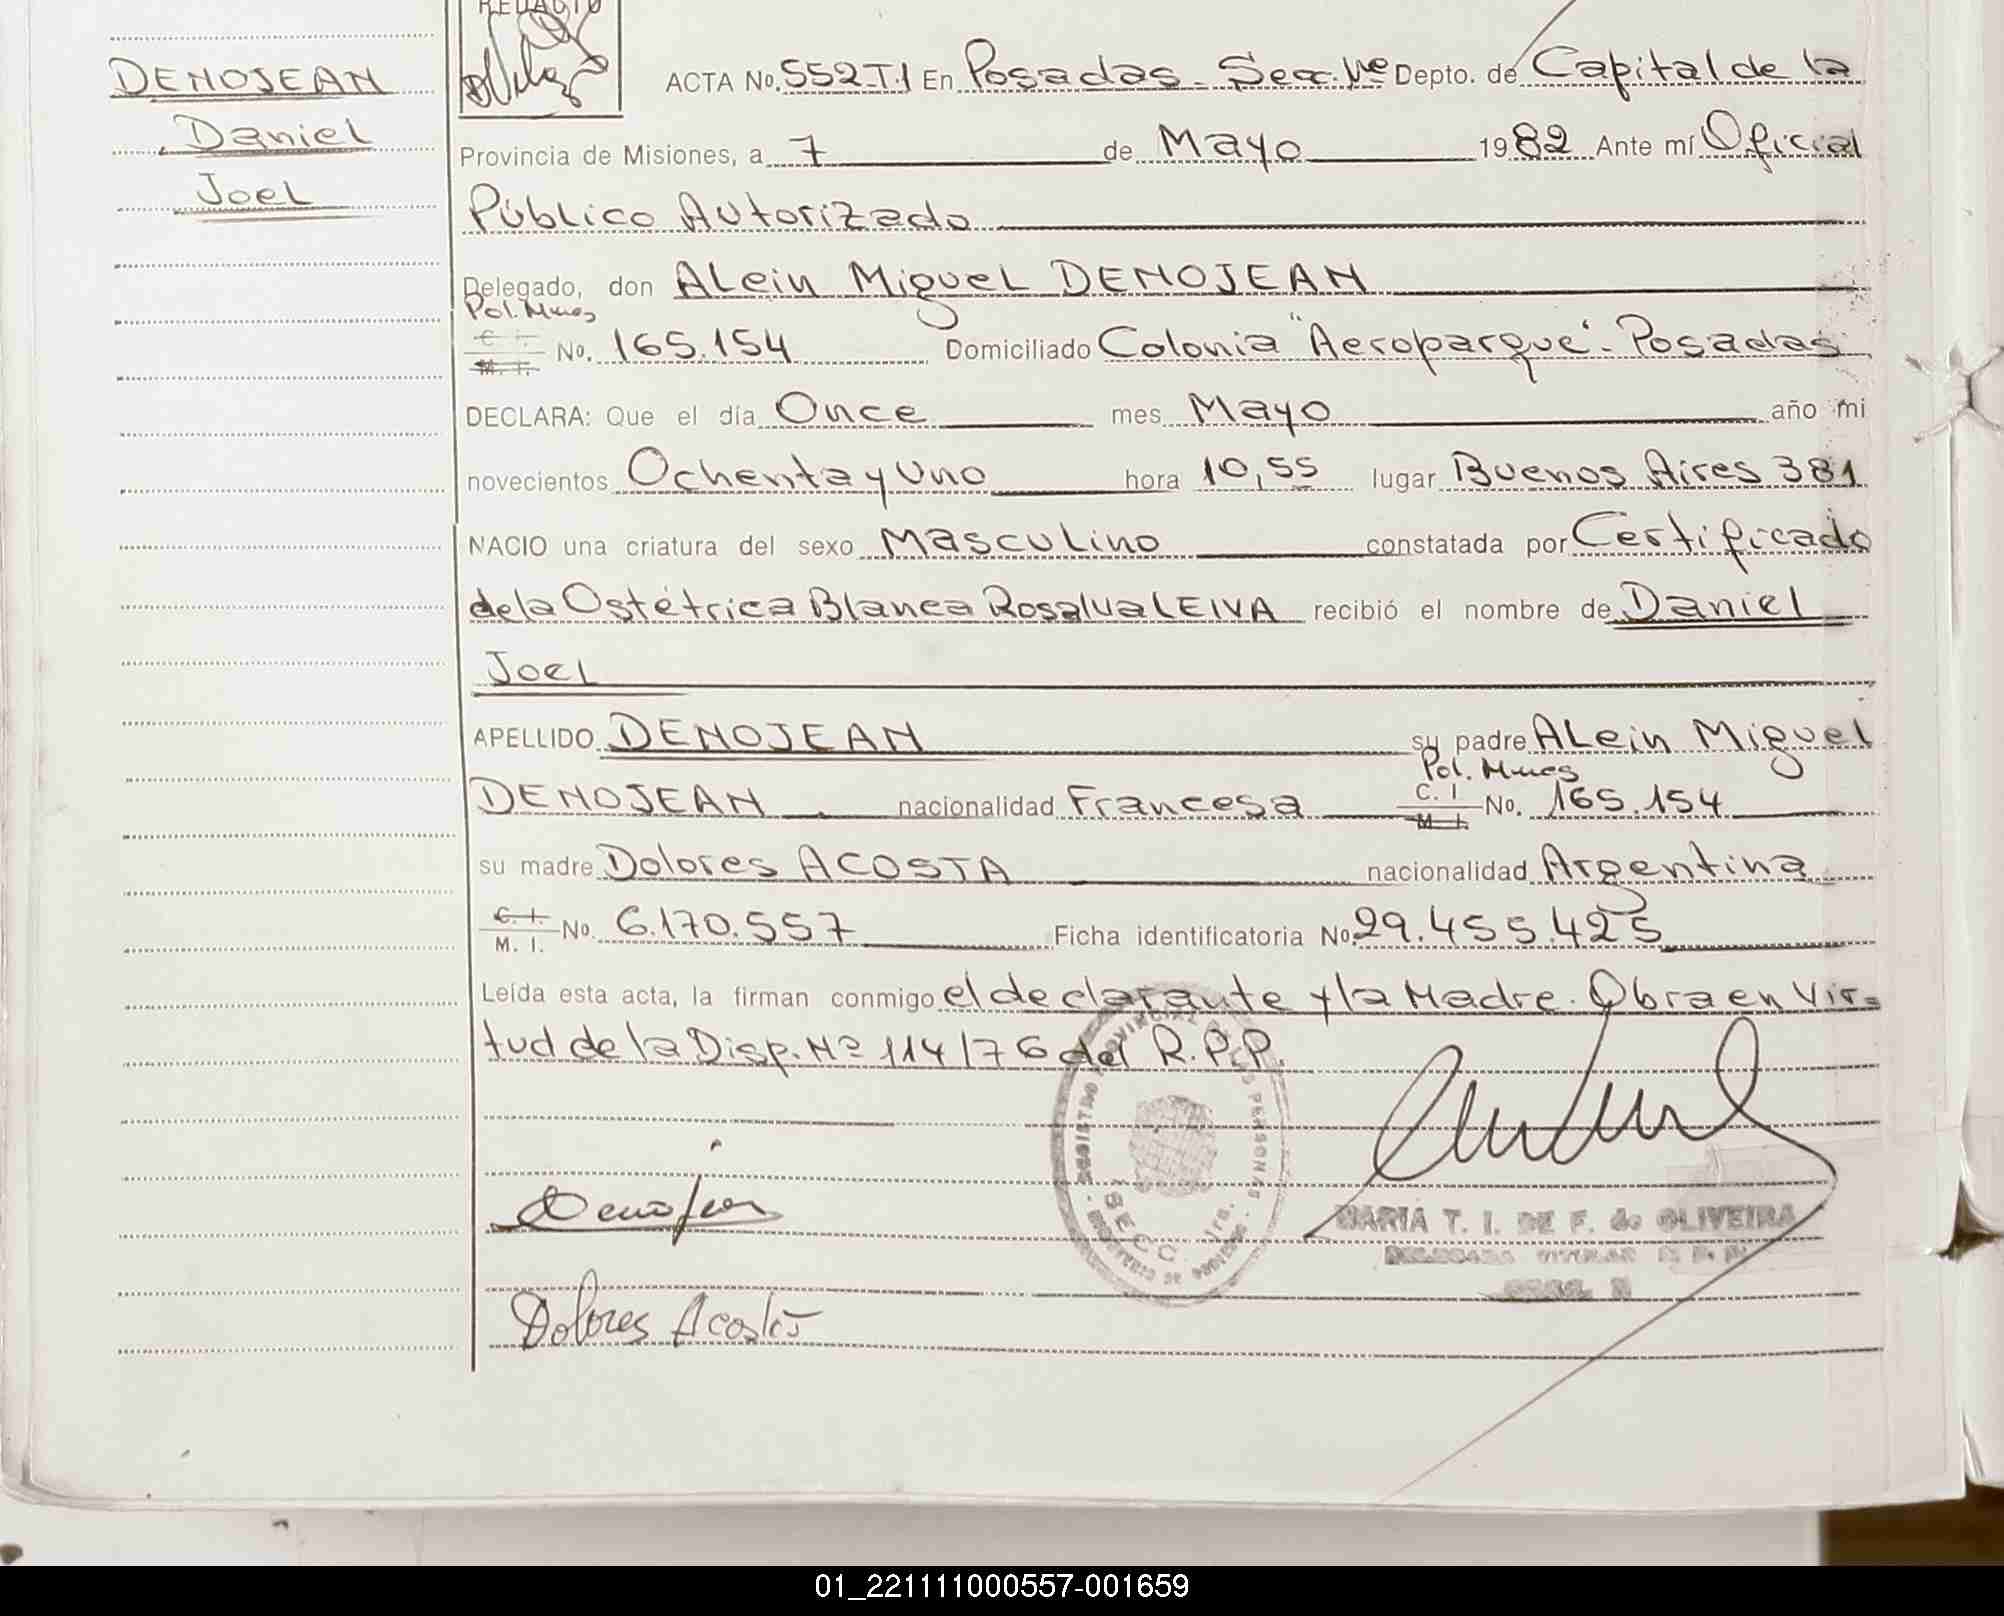 DENOJEAN
Daniel
Joel
REDACTO
ACTA No. 552 T.1 En Posadas - Secc. 1ª Depto. de Capital de la
Provincia de Misiones, a 7 de Mayo 1982 Ante mí Oficial
Público Autorizado
Delegado, don ALein MigueL DENOJEAN
Pol. Mnes
C. I.
M. I. No. 165.154 Domiciliado Colonia "Aeroparque" - Posadas
DECLARA: Que el día Once mes Mayo año mi
novecientos Ochenta y Uno hora 10,55 lugar Buenos Aires 381
NACIO una criatura del sexo Masculino constatada por Certificado
de la Ostétrica Blanca Rosalva LEIVA recibió el nombre de Daniel
Joel
APELLIDO DENOJEAN su padre ALein Miguel
Pol. Mnes
DENOJEAN nacionalidad Francesa C. I. M. I. No. 165.154
su madre Dolores ACOSTA nacionalidad Argentina
C. I. M. I. No. 6.170.557 Ficha identificatoria No. 29.455.425
Leída esta acta, la firman conmigo el declarante y la Madre. Obra en Vir=
tud de la Disp. Nº 114/76 del R.P.P.
REGISTRO PROVINCIAL DE LAS PERSONAS
SECC. 1ra.
Denojean
MARIA T. I. DE F. de OLIVEIRA
DELEGADA TITULAR
Dolores Acosta
01_221111000557-001659